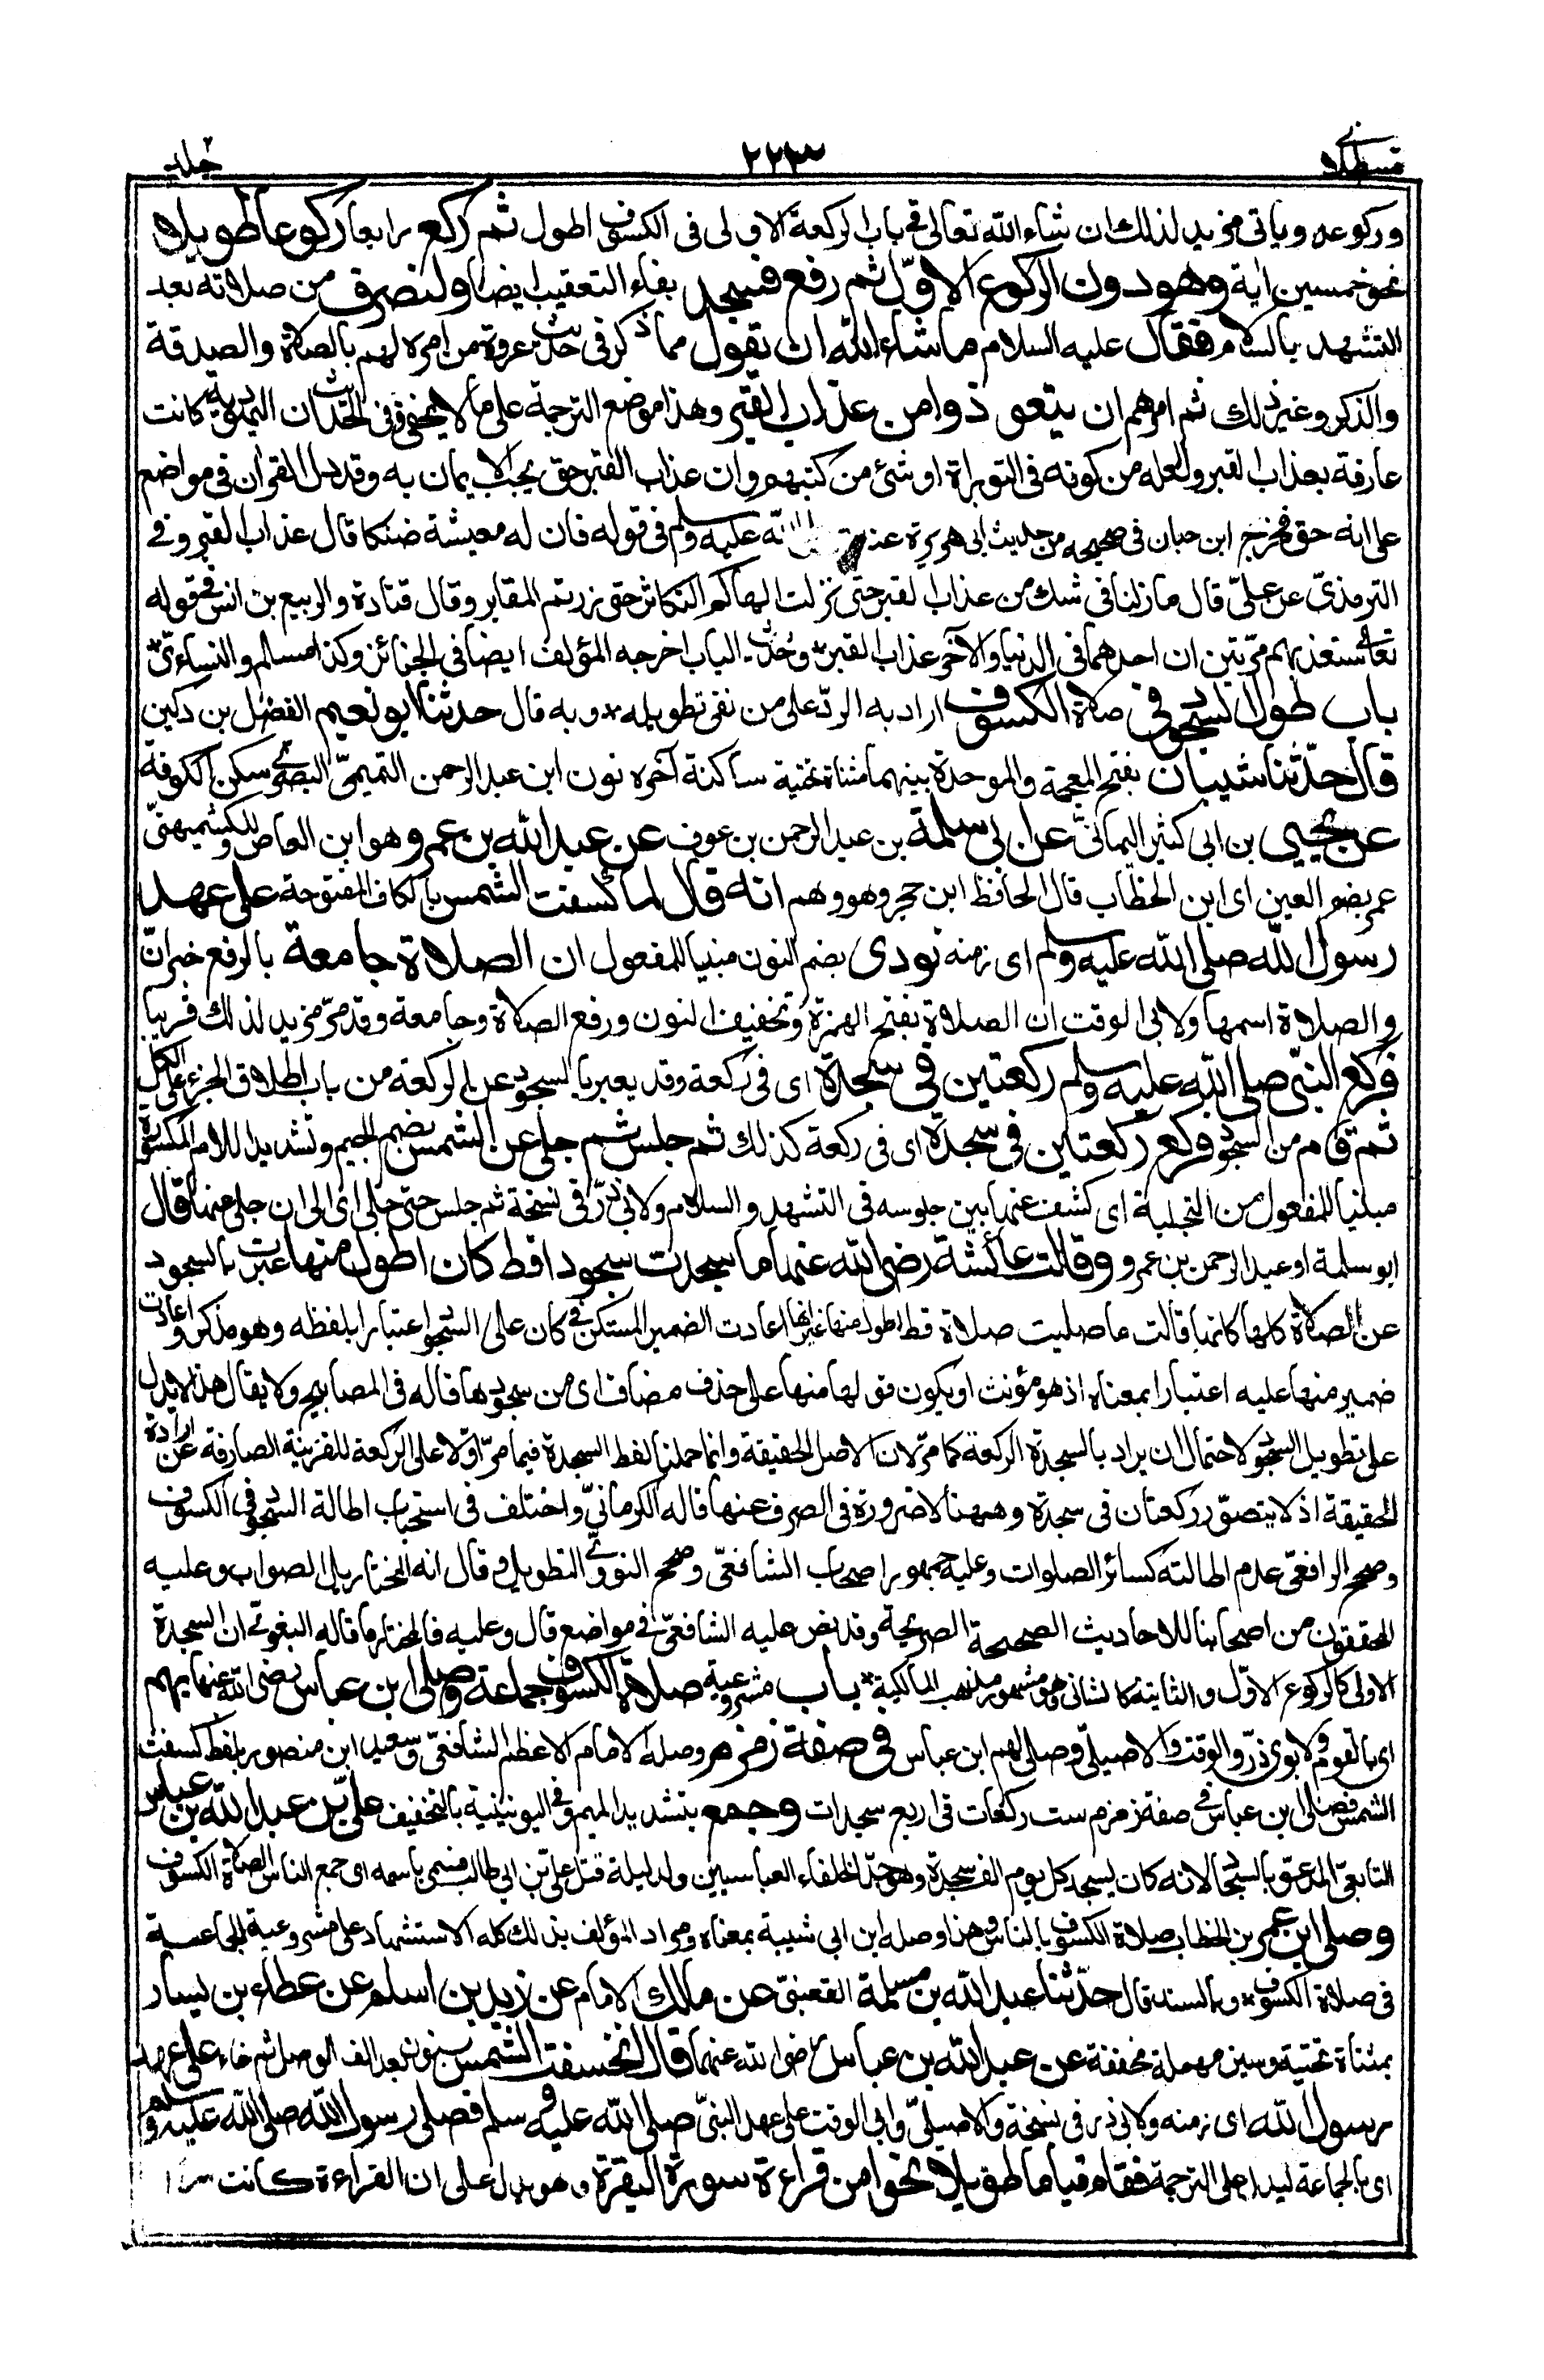 قسطلانى
٢٢٣
جلد٢
وركوعه وياتى مزيد لذلك ان شاء الله تعالى فى باب الركعة الاولى فى الكسوف اطول ثم ركع رابعا ركوعا طويلا
نحو خمسين اية وهو دون الركوع الاوّل ثم رفع فسجد بفاء التعقيب ايضا وانصرف من صلاته بعد
التشهد بالسلام فقال عليه السلام ما شاء الله ان يقول مما ذكر فى حديث عروة من امره لهم بالصلاة والصدقة
والذكر وغير ذلك ثم امرهم ان يتعوذوا من عذاب القبر وهذا موضع الترجمة على ما لا يخفى وفى الحديث ان اليهودية كانت
عارفة بعذاب القبر ولعله من كونه فى التوراة او شئ من كتبهم وان عذاب القبر حق يجب الايمان به وقد دل القرآن فى مواضع
على انه حق فخرج ابن حبان فى صحيحه من حديث ابى هريرة عنه صلى الله عليه وسلم فى قوله فان له معيشة ضنكا قال عذاب القبر وفى
الترمذىّ عن علىّ قال ما زلنا فى شك من عذاب القبر حتى نزلت الهاكم التكاثر حتى زرتم المقابر وقال قتادة والربيع بن انس فى قوله
تعالى سنعذبهم مرّتين ان احدهما فى الدنيا والآخر عذاب القبر* وحديث الباب اخرجه المؤلف ايضا فى الجنائز وكذا مسلم والنساءىّ
باب طول السجود فى صلاة الكسوف اراد به الردّ على من نفى تطويله* وبه قال حدثنا ابو نعيم الفضل بن دكين
قال حدّثنا شيبان بفتح المعجمة والموحدة بينهما مثناة تحتية ساكنة آخره نون ابن عبد الرحمن التميمىّ البصرى سكن الكوفة
عن يحيى بن ابى كثير اليمانىّ عن ابى سلمة بن عبد الرحمن بن عوف عن عبد الله بن عمرو هو ابن العاص وللكشميهنىّ
عمر بضم العين اى ابن الخطاب قال الحافظ ابن حجر وهو وهم انه قال لما كسفت الشمس بالكاف المفتوحة على عهد
رسول الله صلى الله عليه وسلم اى زمنه نودى بضم النون مبنيا للمفعول ان الصلاة جامعة بالرفع خبر انّ
والصلاة اسمها ولابى الوقت ان الصلاة بفتح الهمزة وتخفيف النون ورفع الصلاة وجامعة وقد مرّ مزيد لذلك قريبا
فركع النبى صلى الله عليه وسلم ركعتين فى سجدة اى فى ركعة وقد يعبر بالسجود عن الركعة من باب اطلاق الجزء على الكل
ثم قام من السجود فركع ركعتين فى سجدة اى فى ركعة كذلك ثم جلس ثم جلى عن الشمس بضم الجيم وتشديد اللام المكسورة
مبنيا للمفعول من التجلية اى كشف عنها بين جلوسه فى التشهد والسلام ولابى ذرّ فى نسخة ثم جلس حتى جلى اى الى ان جلى عنها قال
ابو سلمة او عبد الرحمن بن عمرو وقالت عائشة رضى الله عنها ما سجدت سجودا قط كان اطول منها عبرت بالسجود
عن الصلاة كلها كانها قالت ما صليت صلاة قط اطول منها غير انها اعادت الضمير المستكن فى كان على السجود اعتبارا بلفظه وهو مذكر واعادت
ضمير منها عليه اعتبارا بمعناه اذ هو مؤنث او يكون قولها منها على حذف مضاف اى من سجودها قاله فى المصابيح ولا يقال هذا لا يدل
على تطويل السجود لاحتمال ان يراد بالسجدة الركعة كما مرّ لان الاصل الحقيقة وانما حملنا لفظ السجدة فيما مرّ اوّلا على الركعة للقرينة الصارفة عن ارادة
الحقيقة اذ لا يتصوّر ركعتان فى سجدة وههنا لا ضرورة فى الصرف عنها قاله الكرمانىّ واختلف فى استحباب اطالة السجود فى الكسوف
وصحح الرافعىّ عدم اطالته كسائر الصلوات وعليه جمهور اصحاب الشافعىّ وصحح النووىّ التطويل وقال انه المختار بل الصواب وعليه
المحققون من اصحابنا للاحاديث الصحيحة الصريحة وقد نص عليه الشافعىّ فى مواضع قال وعليه فالمختار ما قاله البغوىّ ان السجدة
الاولى كالركوع الاوّل والثانية كالثانى وهو مشهور مذهب المالكية* باب مشروعية صلاة الكسوف جماعة وصلى ابن عباس رضى الله عنهما بهم
اى بالقوم ولابوى ذرّ والوقت والاصيلىّ وصلى لهم ابن عباس فى صفة زمزم وصله الامام الاعظم الشافعىّ وسعيد ابن منصور بلفظ كسفت
الشمس فصلى ابن عباس فى صفة زمزم ست ركعات فى اربع سجدات وجمع بتشديد الميم وفى اليونينية بالتخفيف علىّ بن عبد الله بن عباس
التابعىّ المدعوّ بالسجاد لانه كان يسجد كل يوم الف سجدة وهو جدّ الخلفاء العباسيين ولد ليلة قتل علىّ بن ابى طالب فسمى باسمه اى جمع الناس لصلاة الكسوف
وصلى ابن عمر بن الخطاب صلاة الكسوف بالناس وهذا وصله ابن ابى شيبة بمعناه ومراد المؤلف بذلك كله الاستشهاد على مشروعية الجماعة
فى صلاة الكسوف* وبالسند قال حدّثنا عبد الله بن مسلمة القعنبىّ عن مالك الامام عن زيد بن اسلم عن عطاء بن يسار
بمثناة تحتية وسين مهملة مخففة عن عبد الله بن عباس رضى الله عنهما قال انخسفت الشمس بنون بعد الف الوصل ثم خاء على عهد
رسول الله اى زمنه ولابى ذر فى نسخة والاصيلىّ وابى الوقت على عهد النبىّ صلى الله عليه وسلم فصلى رسول الله صلى الله عليه وسلم
اى بالجماعة ليدل على الترجمة فقام قياما طويلا نحوا من قراءة سورة البقرة وهو يدل على ان القراءة كانت سرّا